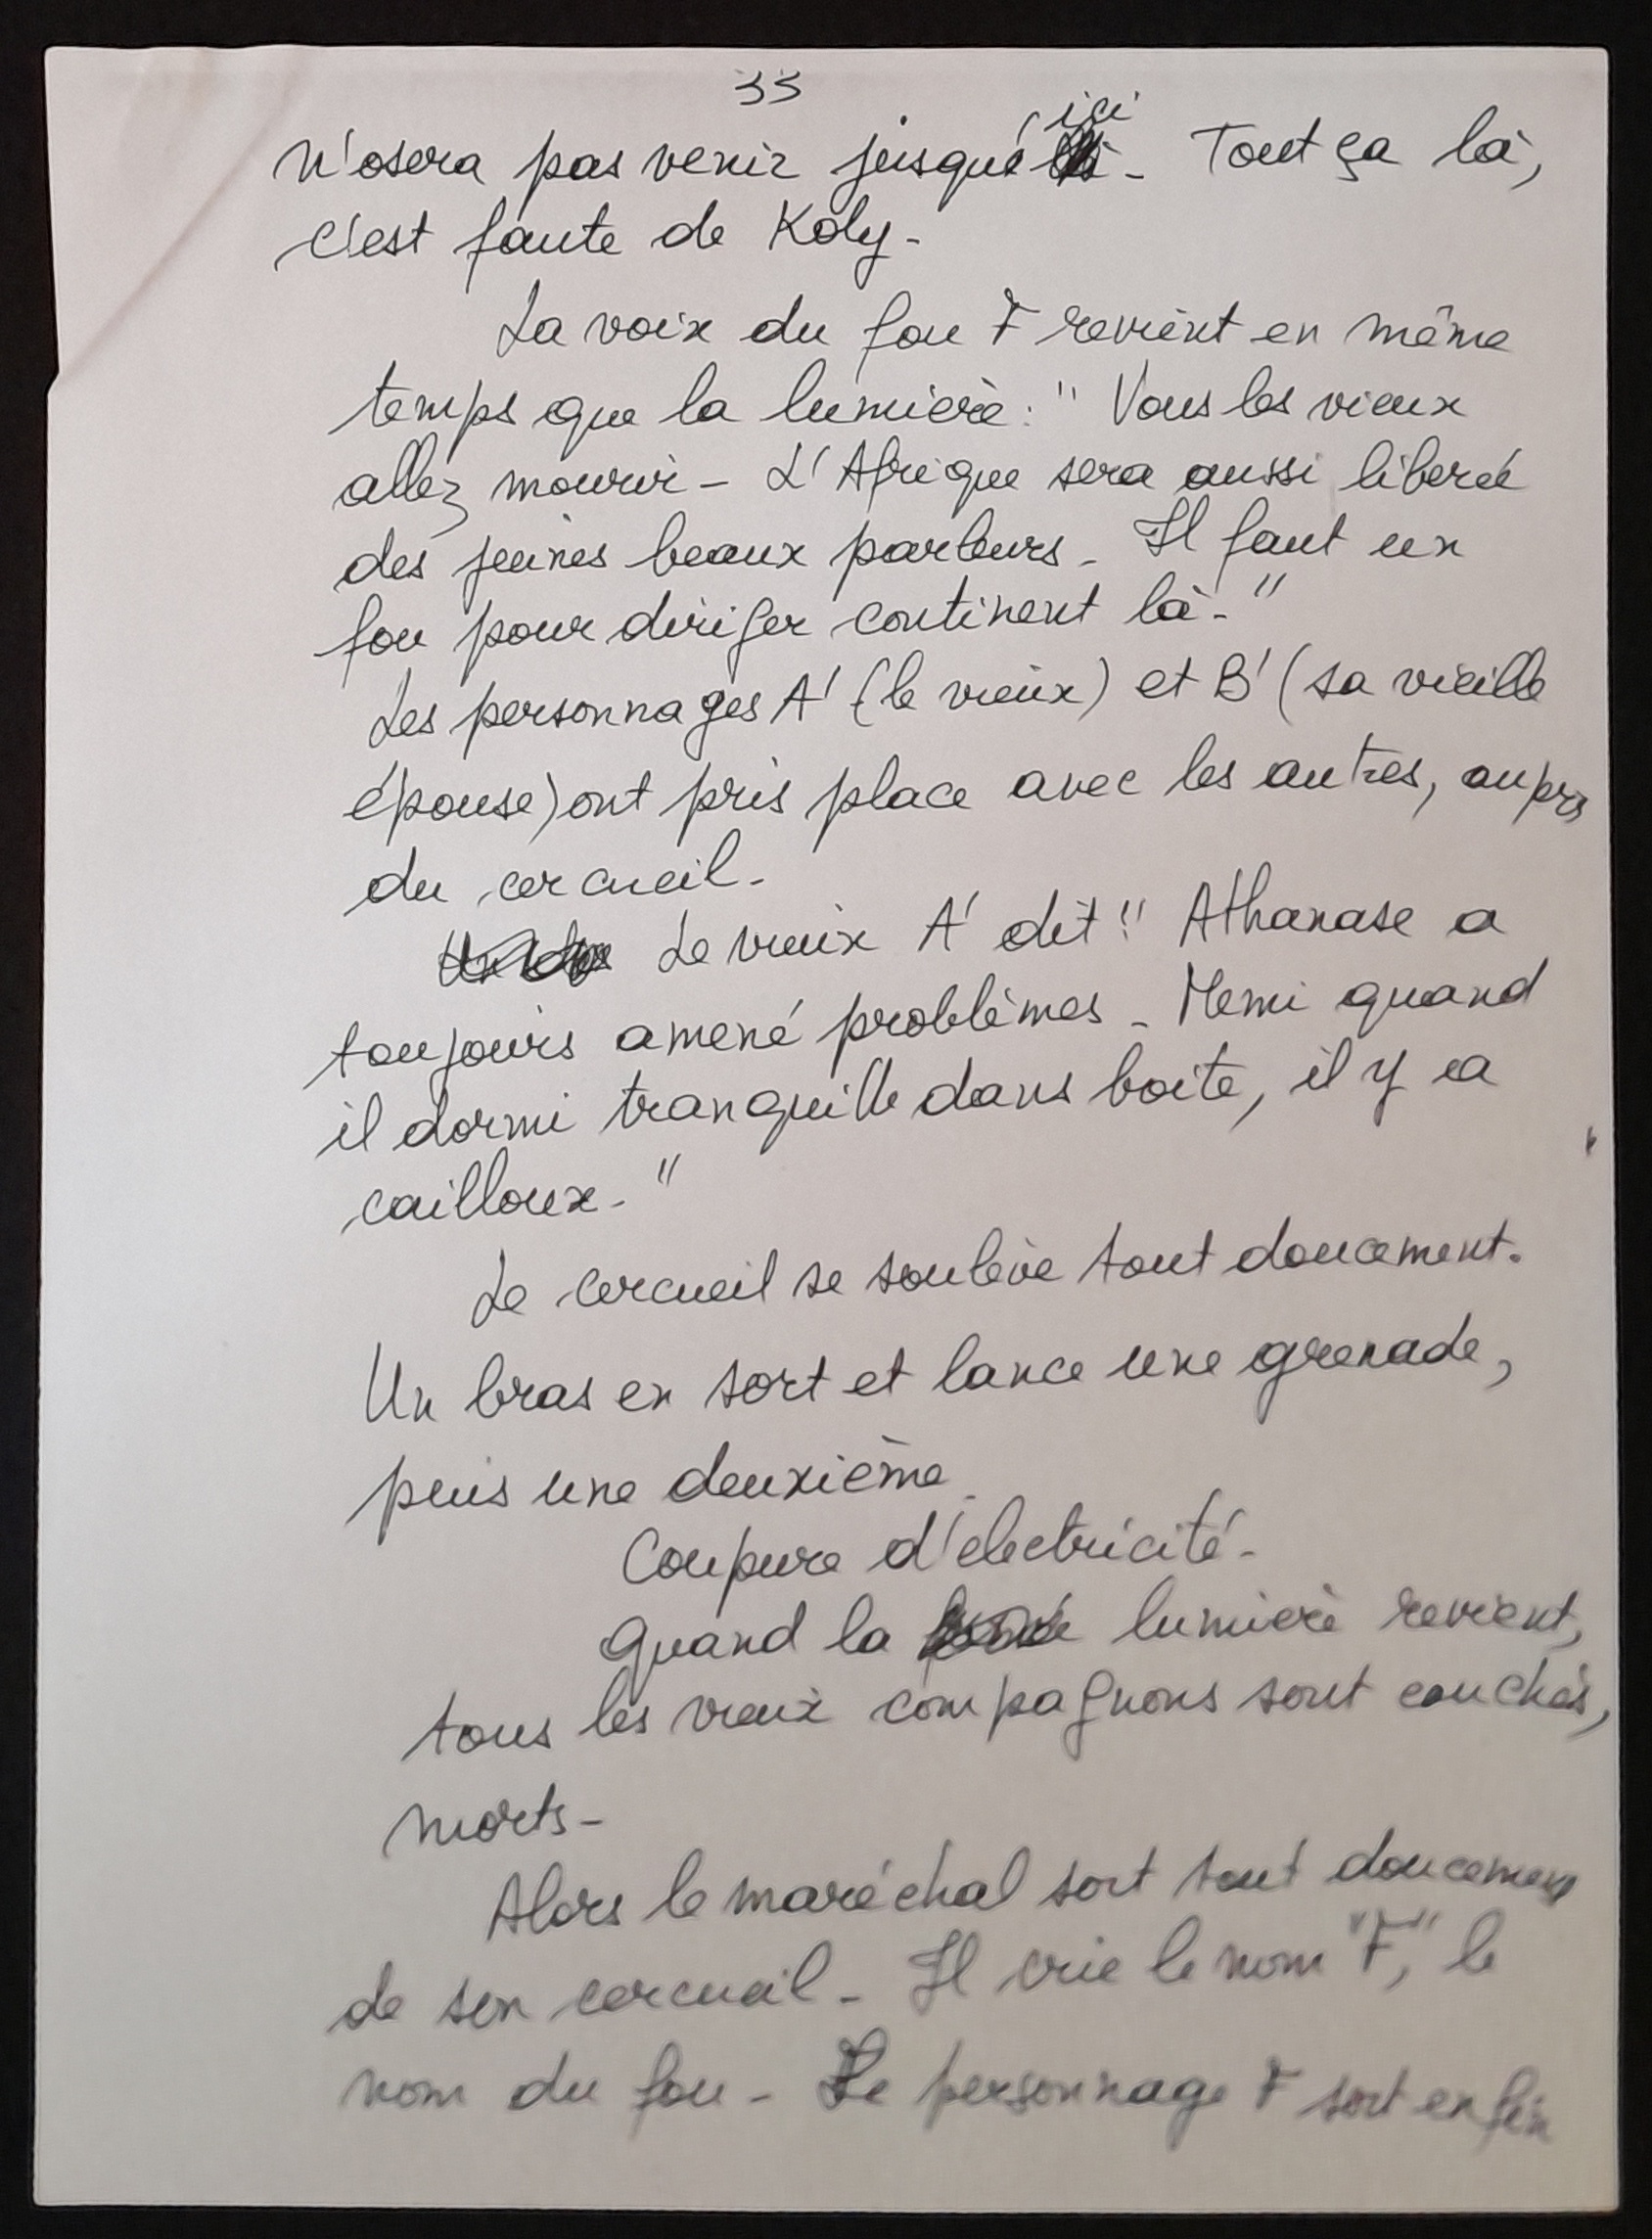 33
n'osera pas venir jusqu'ici. Tout ça là,
c'est faute de Koly.
La voix du fou F revient en même
temps que la lumière : " Vous les vieux
allez mourir. L'Afrique sera aussi liberée
des jeunes beaux parleurs. Il faut un
fou pour diriger continent là."
Les personnages A' (le vieux) et B' (sa vieille
épouse) ont pris place avec les autres, auprs
du cercueil.
Le vieux A' dit " Athanase a
toujours amené problèmes. Memi quand
il dormi tranquille dans boite, il y a
cailloux."
Le cercueil se soulève tout doucement.
Un bras en sort et lance une grenade,
puis une deuxième.
Coupure d'électricité.
Quand la lumière revient,
tous les vieux compagnons sont couchés,
morts.
Alors le maréchal sort tout doucement
de son cercueil. Il crie le nom "F", le
nom du fou. Le personnage F sort enfin